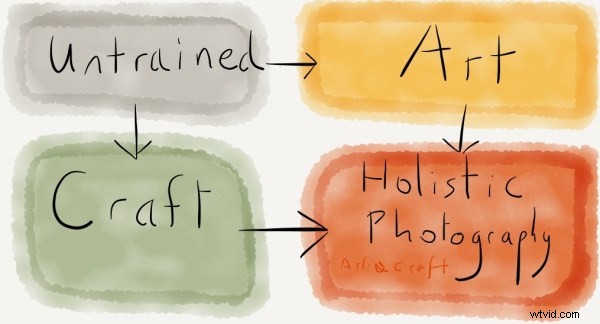 Untrained
Art
Craft
Holistic
Photography
Art & Craft
wtvid.com